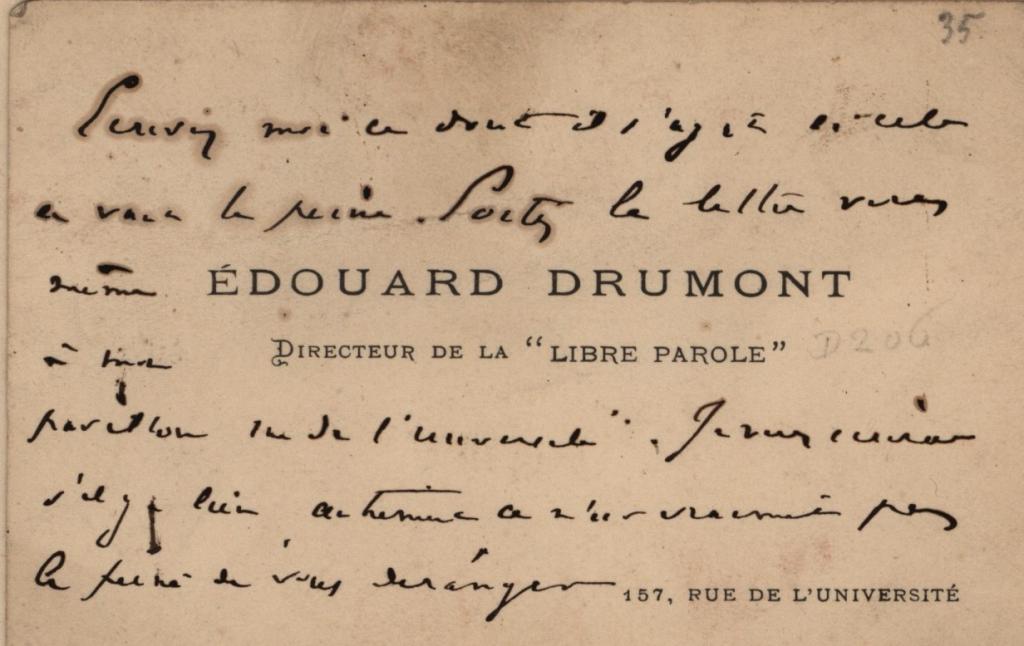 35
Ecrivez moi ce dont il s'agit si cela
en vaut la peine. Portez la lettre vous
même
ÉDOUARD DRUMONT
DIRECTEUR DE LA "LIBRE PAROLE"
D206
à mon
pavillon rue de l'université. Je vous écrirai
s'il y a lieu autrement ce n'est vraiment pas
la peine de vous déranger
157, RUE DE L'UNIVERSITÉ